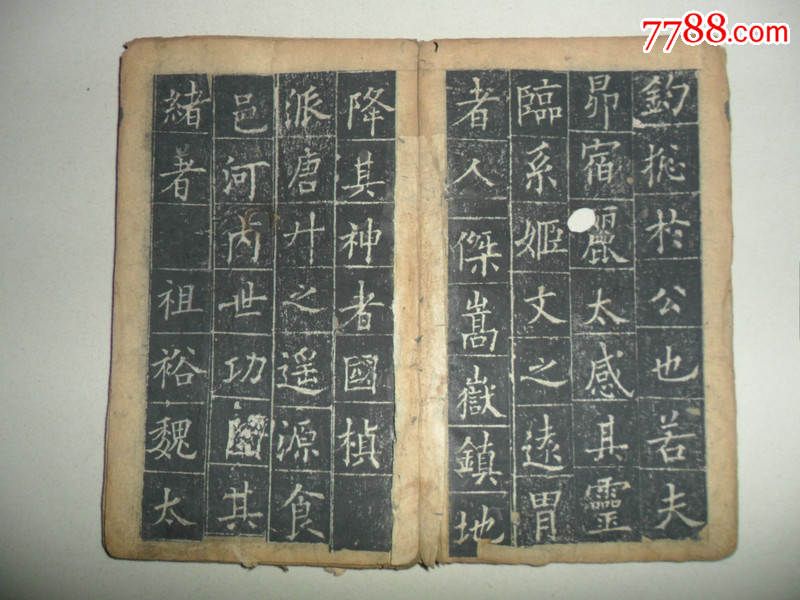 7788.com
鈞捴於公也若夫
昴宿麗太感其靈
臨系姬文之遠胃
者人傑嵩嶽鎮地
降其神者國楨
派唐廾之遥源食
邑河丙世功其
緒著祖裕魏太